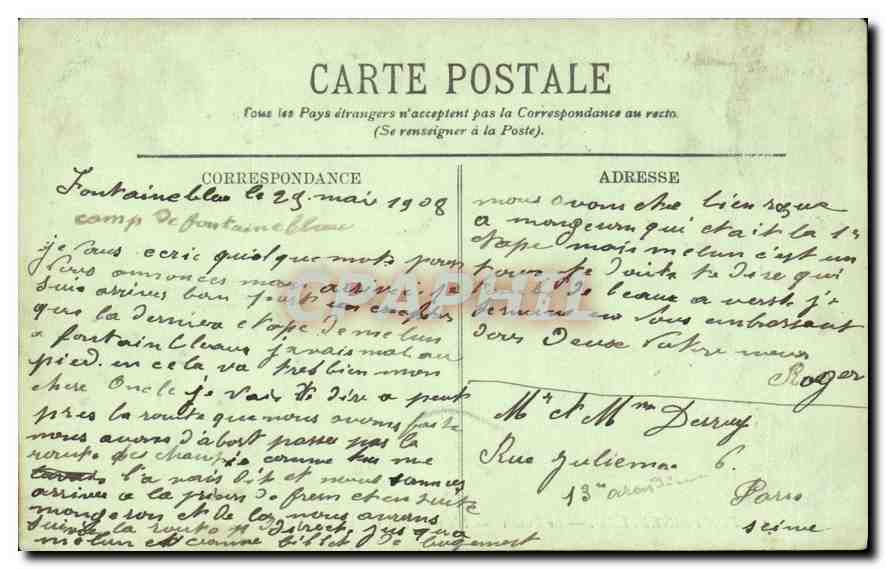 CARTE POSTALE
Tous les Pays étrangers n'acceptent pas la Correspondance au recto.
(Se renseigner à la Poste).
CORRESPONDANCE
Fontaineblau le 29 mai 1908
camp de fontainebleau
je vous ecrie quelque mots pour
vous annonces mon arrivée. je
suis arrives bon
que la derniere etape de melun
a fontainebleaux j'avais mal au
pied. en cela va tres bien mon
chere Oncle je vais te dire a peut
pres la route que nous avons faite
nous avons d'abort passer par la
route des comme tu me
l'avais dit et nous sommes
arrives a la et en suite
mongeron et de la nous avons
suive la route direct jusqu'a
melun et comme billet de logement
ADRESSE
nous avons etre bien reçue
a mongeron qui etait la 1r
etape mais melun c'est un
je doits te dire qui
de l'eaux a verse je
termine en vous embrassant
tous deux votre neveu
Roger
Mr et Mme Desruy
Rue julienne 6.
13me
Paris
seine
CPAPHIL